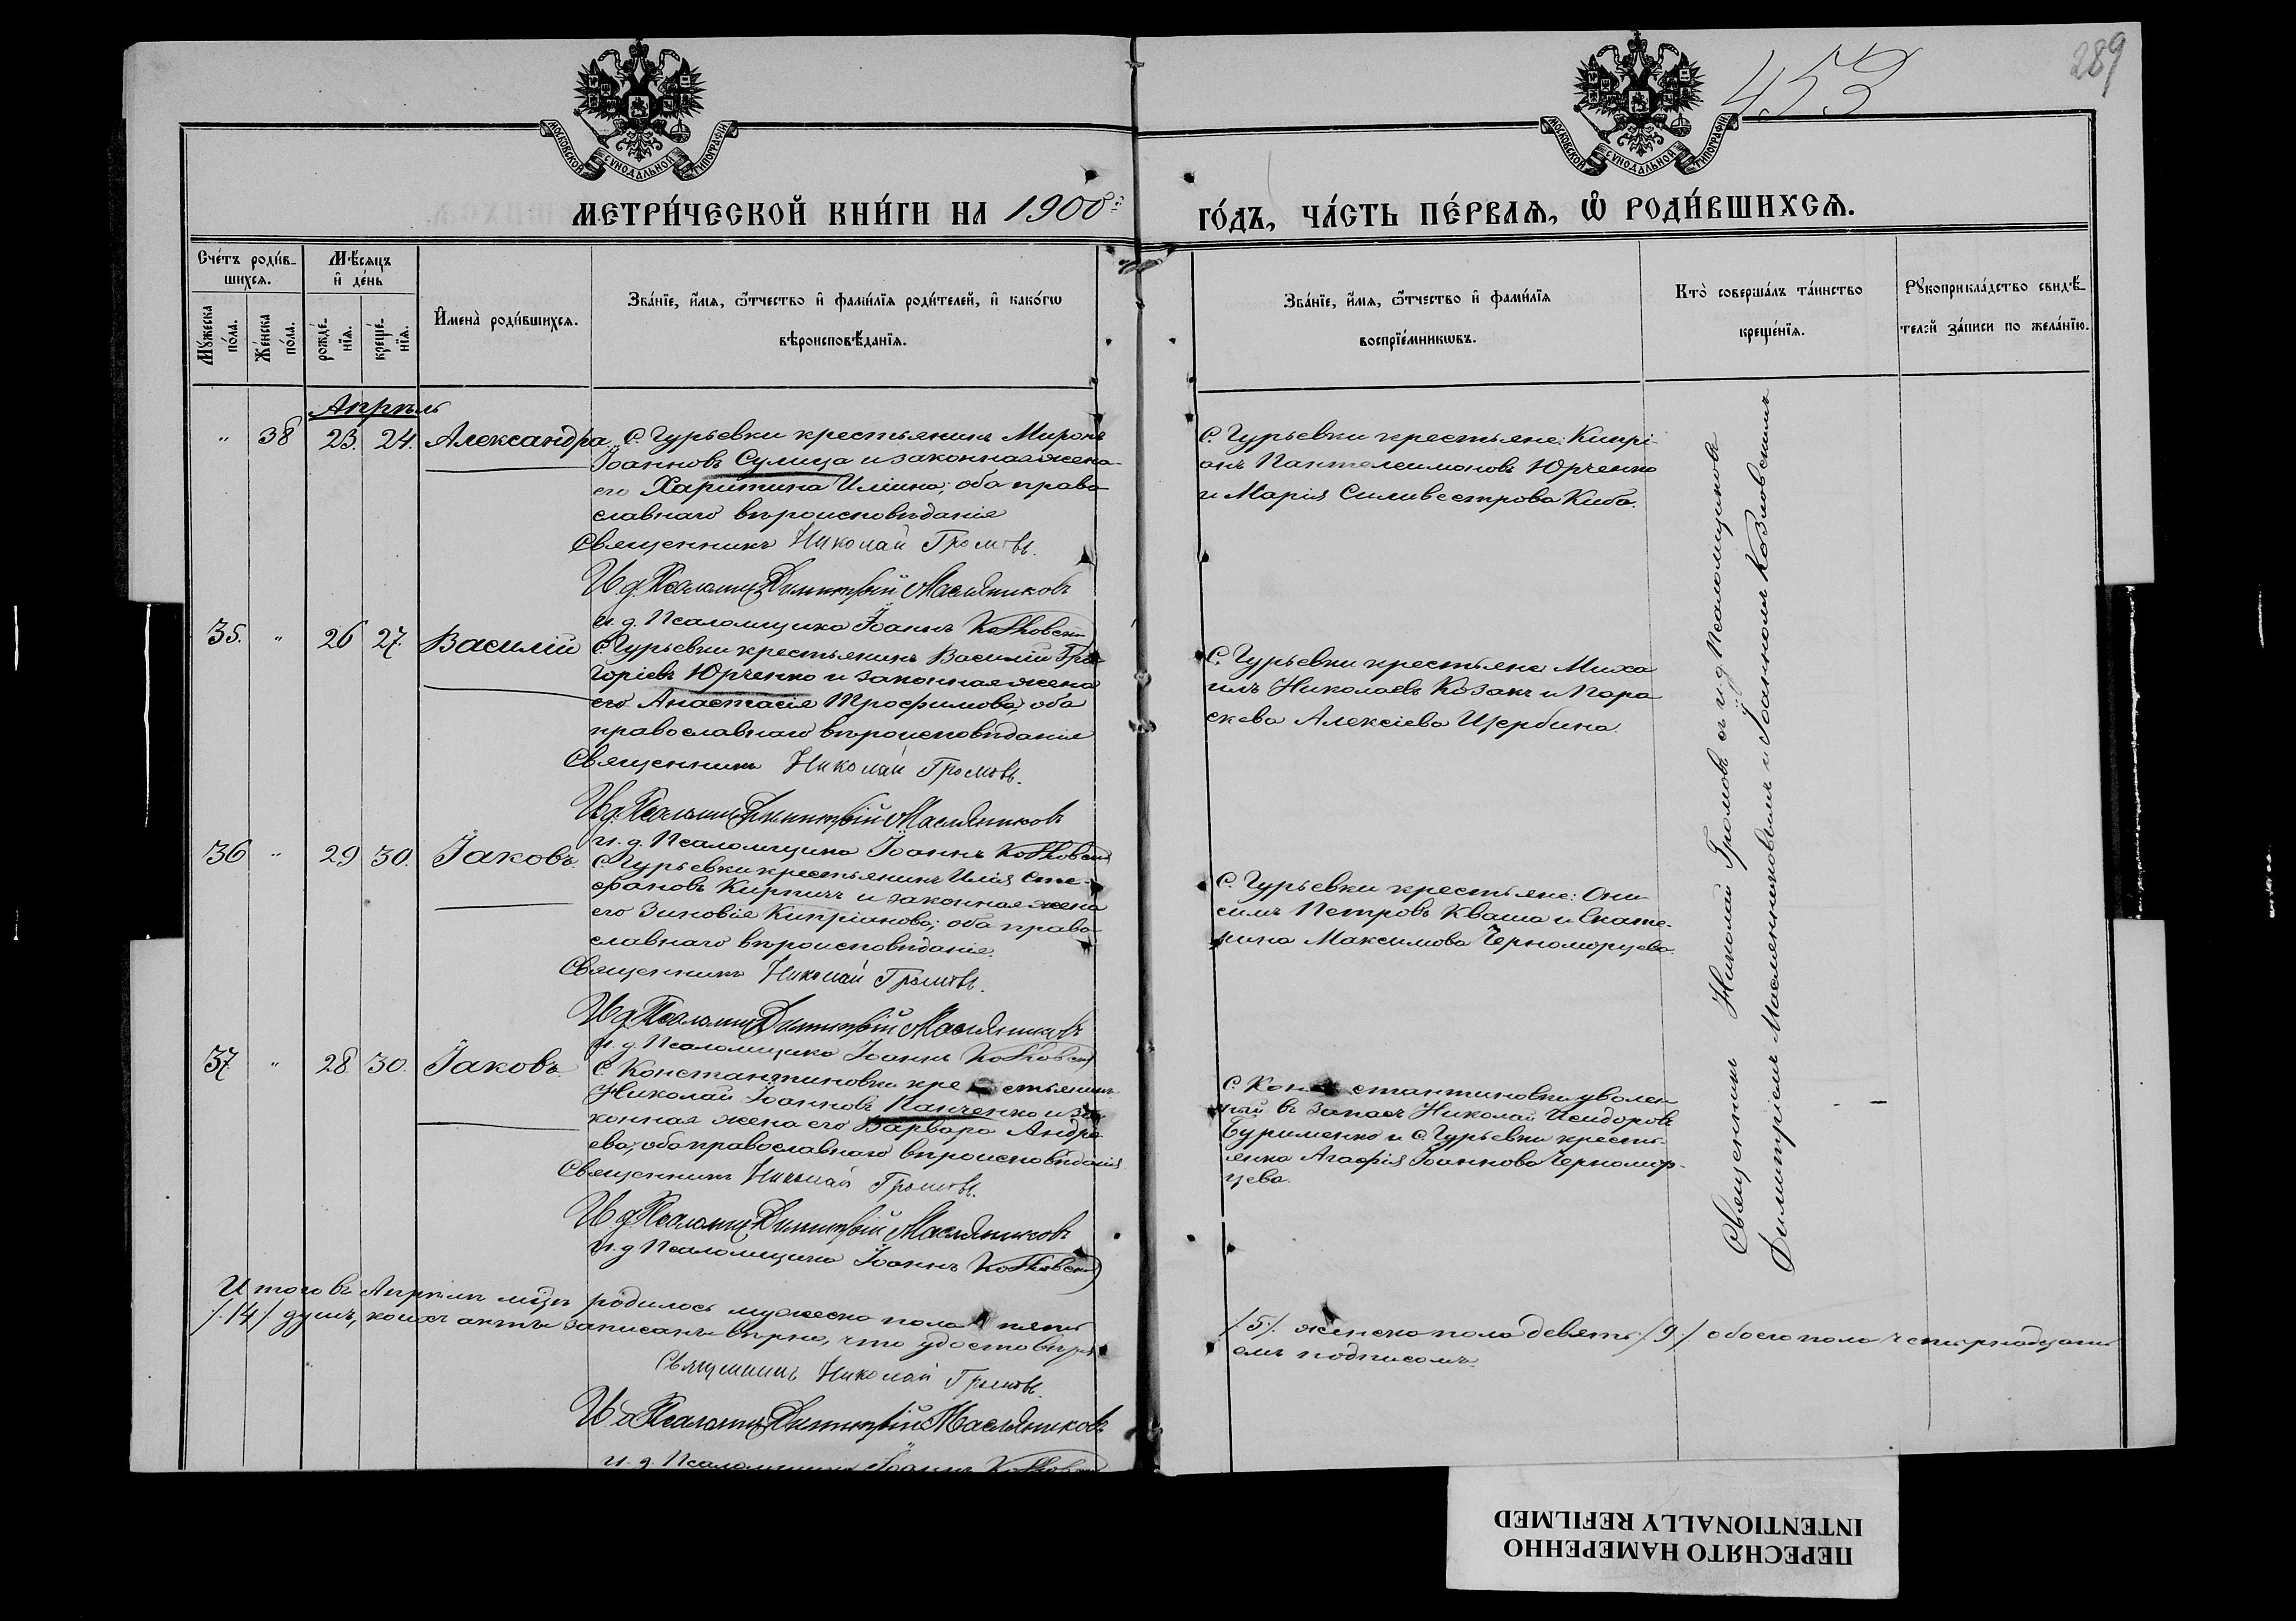 453
289
МОСКОВСКОЙ СѴНОДАЛЬНОЙ ТИПОГРАФІИ
МОСКОВСКОЙ СѴНОДАЛЬНОЙ ТИПОГРАФІИ
МЕТРИ́ЧЕСКОЙ КНИ́ГИ НА 1900й
ГО́ДЪ, ЧА́СТЬ ПЕ́РВАЯ, Ѡ҆ РОДИ́ВШИХСЯ.
Сче́тъ роди́в-
шихся.
Мѣ́сяцъ
и҆ де́нь
Мꙋ́жеска
по́ла.
Же́нска
по́ла.
рожде́-
нїя.
креще́-
нїя.
И҆мена̀ роди́вшихся.
Зва́нїе, и҆́мя, ѻ҆́тчество и҆ фамі́лїя роди́телей, и҆ како́гѡ
вѣроисповѣ́данїя.
Зва́нїе, и҆́мя, ѻ҆́тчество и҆ фамі́лїя
воспрїе́мникѡвъ.
Кто̀ соверша́лъ та́инство
креще́нїя.
Рꙋкоприкла́дство свидѣ́-
телей за́писи по жела́нїю.
Апрѣль
" 38 23. 24. Александра
С. Гурьевки крестьянинъ Миронъ
Іоанновъ Сулица и законная жена
его Харитина Иліина; оба право
славнаго вѣроисповѣданія
Священникъ Николай Громовъ.
И. д. Псаломщ. Димитрій Маслянниковъ
и. д. Псаломщика Іоаннъ
С. Гурьевки крестьяне: Кипрі-
анъ Пантелеимоновъ Юрченко
и Марія Силивестрова Киба.
35. " 26 27. Василій
С. Гурьевки крестьянинъ Василій Гри
горіевъ Юрченко и законная жена
его Анастасія Трофимова; оба
православнаго вѣроисповѣданія
Священникъ Николай Громовъ.
И. д. Псаломщ. Димитрій Маслянниковъ
и. д. Псаломщика Іоаннъ
С. Гурьевки крестьяне: Миха
илъ Николаевъ Козакъ и Пара
скева Алексіева Щербина.
36 " 29 30. Іаковъ
С. Гурьевки крестьянинъ Илія Сте-
фановъ Кирпичъ и законная жена
его Зиновія Кипріанова; оба право
славнаго вѣроисповѣданія.
Священникъ Николай Громовъ.
И. д. Псаломщ. Димитрій Маслянниковъ
и. д. Псаломщика Іоаннъ
С. Гурьевки крестьяне: Они
симъ Петровъ Кваша и Екате-
рина Максимова Черноморцева.
37. " 28 30. Іаковъ
С. Константиновки кре стьянинъ
Николай Іоанновъ Панченко и за
конная жена его Варвара Андре
ева; оба православнаго вѣроисповѣданія.
Священникъ Николай Громовъ.
И. д. Псаломщ. Димитрій Маслянниковъ
и. д. Псаломщика Іоаннъ
С. Кон стантиновки уволен
ный въ запасъ Николай Исидоровъ
Бурименко и С. Гурьевки кресть-
янка Агафія Іоаннова Черномор-
цева.
Священникъ Николай Громовъ съ и. д. Псаломщиковъ
Димитріемъ Маслянниковымъ и Іоанномъ Козловскимъ
Итого въ Апрѣлѣ мѣцѣ родилось мужеска пола пять
/5/. женска пола девять /9/ обоего пола четырнадцать
/14/ душъ, коихъ акты записаны вѣрно, что удостовѣря
емъ подписомъ.
Священникъ Николай Громовъ.
И. д. Псаломщ. Димитрій Маслянниковъ
и. д. Псаломщика Іоаннъ
ПЕРЕСНЯТО НАМЕРЕННО
INTENTIONALLY REFILMED